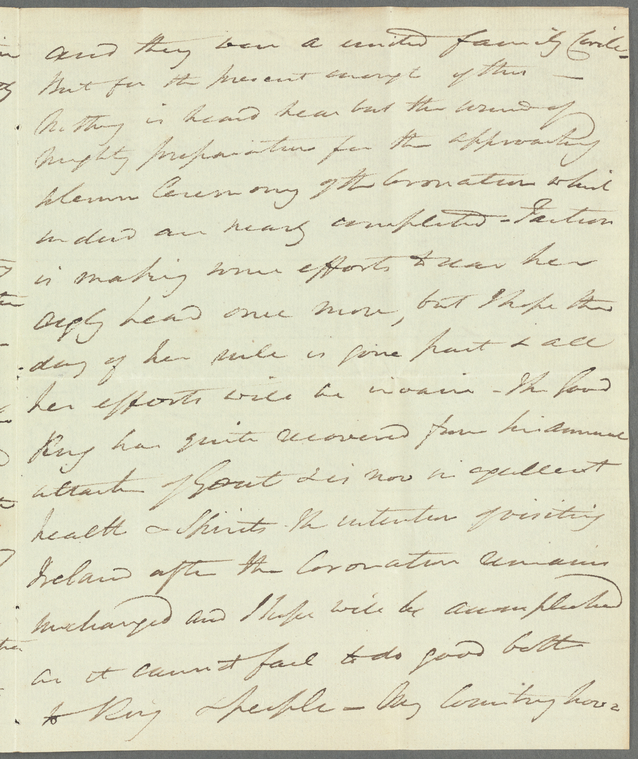 and they are a united family Circle
But for the present enough of this —
Nothing is heard hear but the sound of
mighty preparation for the approaching
solemn Ceremony of the Coronation which
indeed are nearly completed - Faction
is making some efforts to rear her
ugly head once more, but I hope the
day of her rule is gone past & all
her efforts will be in vain - The good
King has quite recovered from his annual
attack of Gout & is now in excellent
health & Spirits. The intention of visiting
Ireland after the Coronation remains
unchanged and I hope will be accomplished
as it cannot fail to do good both
to King & people — My Country house